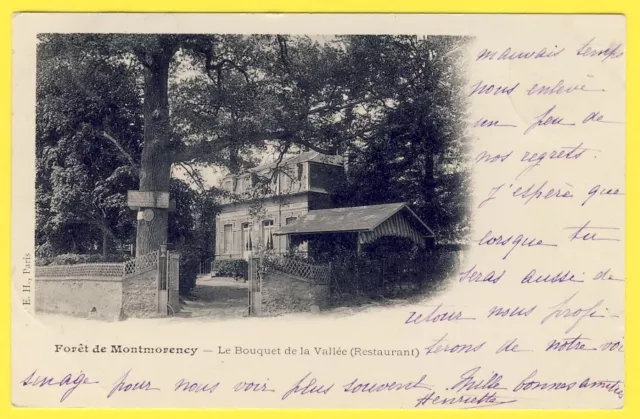 mauvais temps
nous enlève
un peu de
nos regrets.
J'espère que
lorsque tu
seras aussi de
retour nous profi-
terons de notre voi
sinage pour nous voir plus souvent. Mille bonnes amitiés
Henriette
Forêt de Montmorency – Le Bouquet de la Vallée (Restaurant)
E. H., Paris